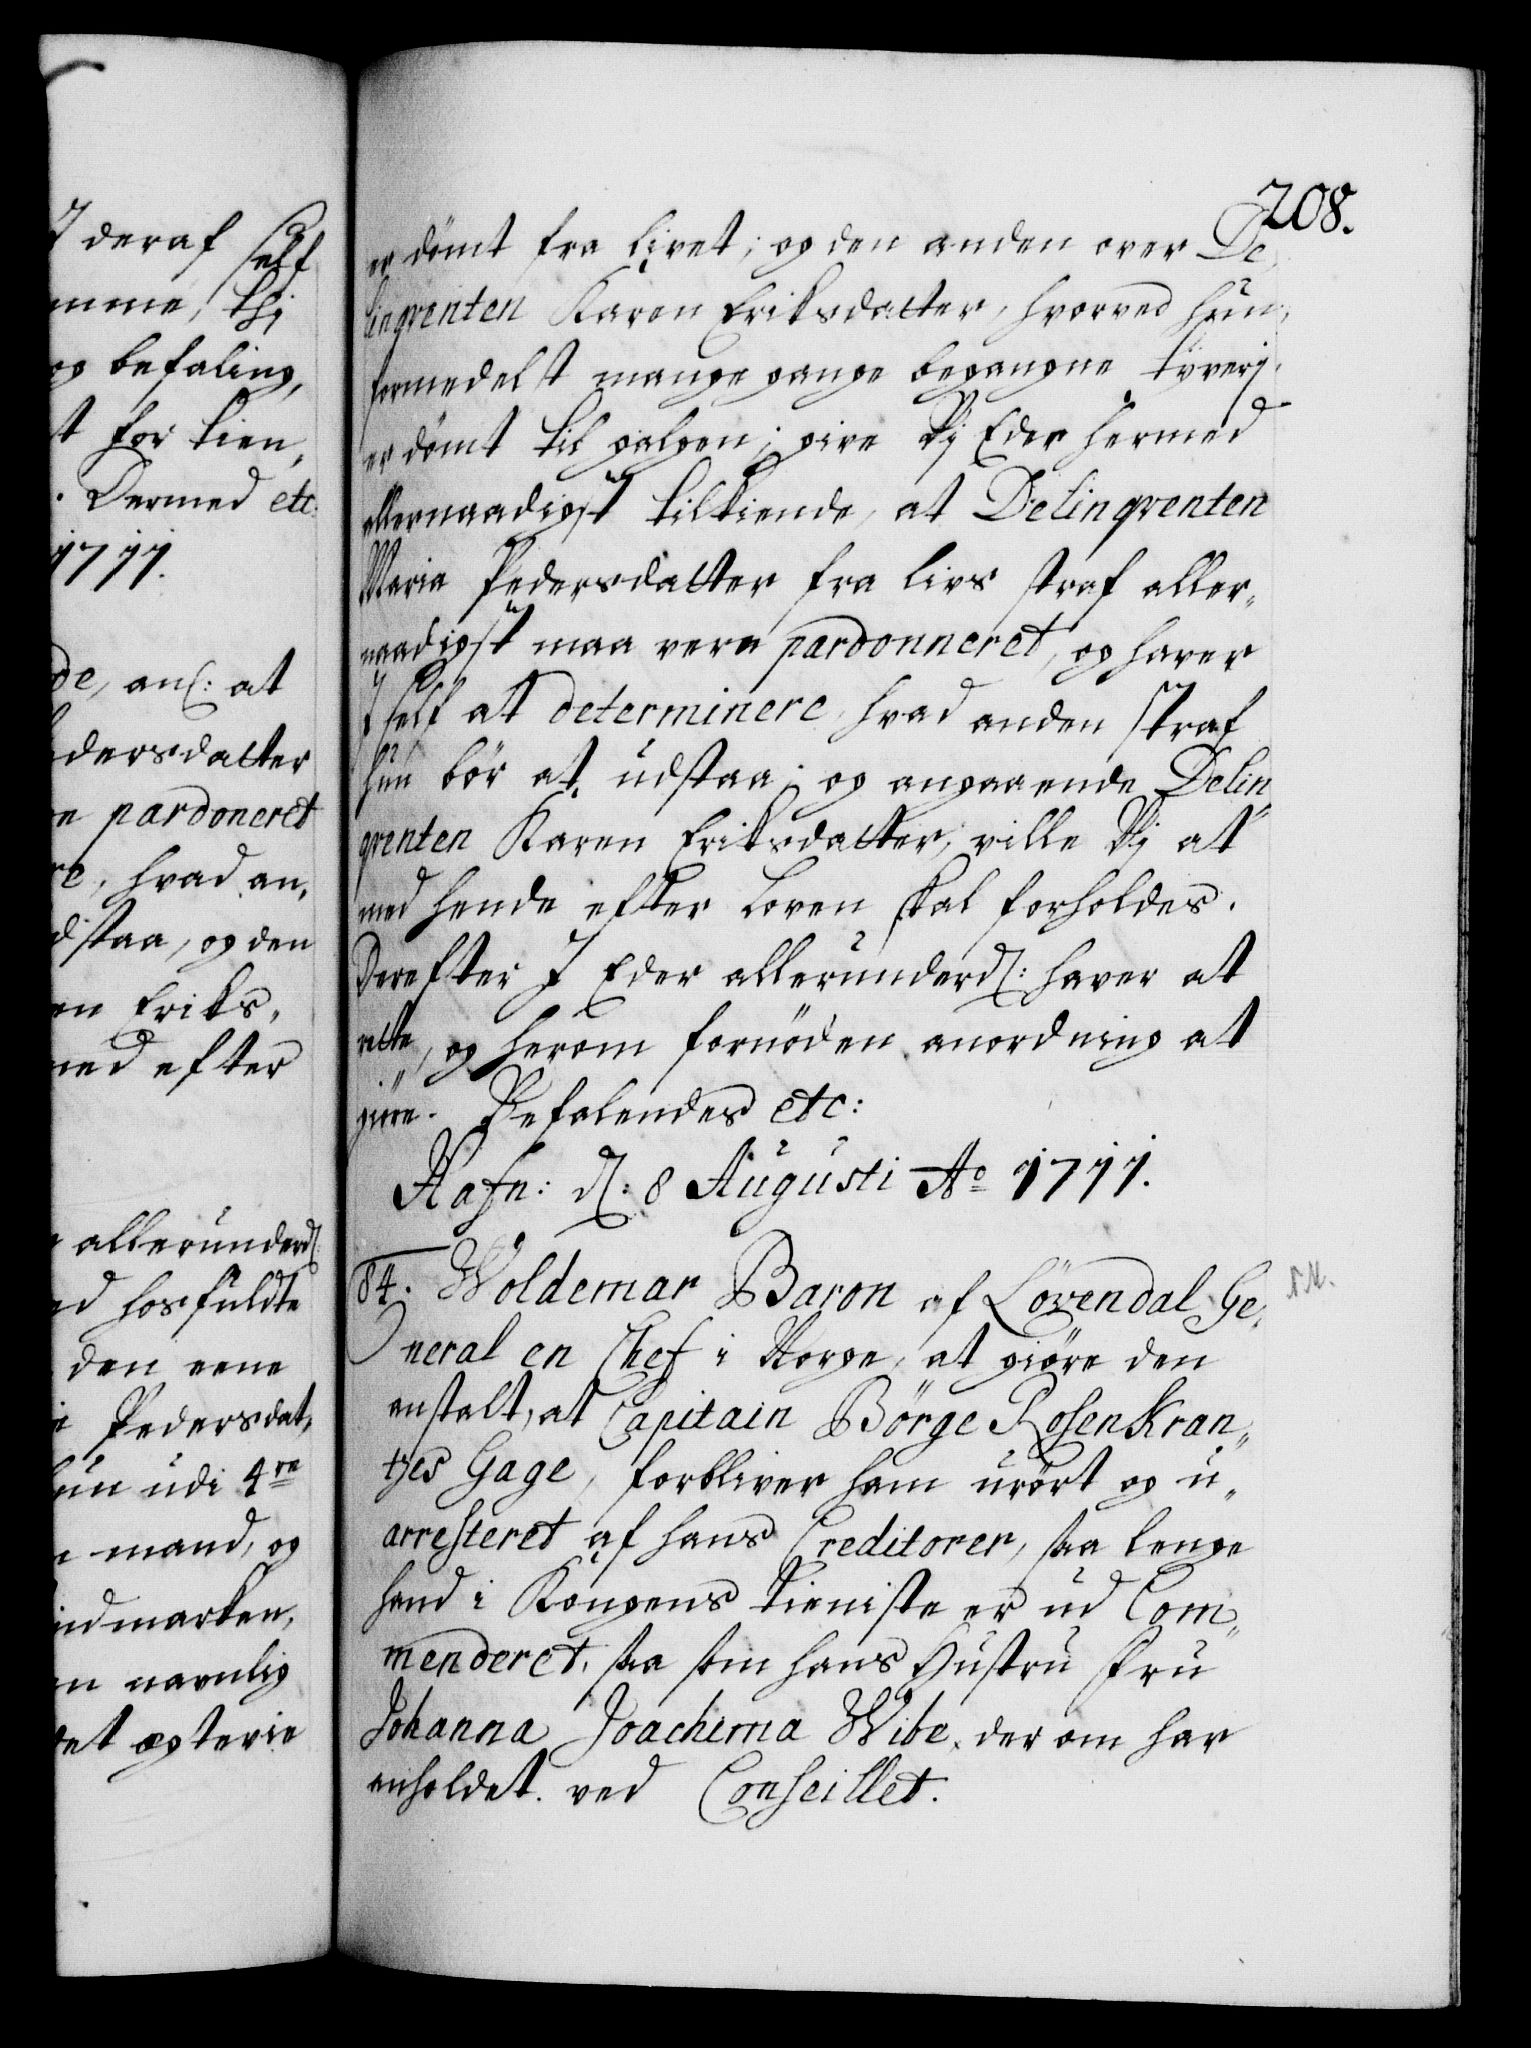 J deraf self
mme, thj
og befaling,
t for tien,
. Dermed etc:
1711.
de, anl: at
dersdatter
e pardoneret
re, hvad an,
dstaa, og den
en Eriks,
med efter
allerunderd:
ed hosfuldte
den eene
Pedersdat,
hun udi 4re
mand, og
indmarken,
en navnlig
det egterie
208.
er dömt fra livet; og den anden over De,
linqventen Karen Eriksdatter, hvorved hun,
formedelst mange gange begangne tyverj,
er dömt til galgen; give Vj Eder hermed
allernaadigst tilkiende, at Delinqventen
Maria Pedersdatter fra livs straf aller„
naadigst maa vere pardonneret, og haver
J self at determinere, hvad anden straf
hun bör at udstaa; og angaaende Delin„
qventen Karen Eriksdatter, ville Vj at
med hende efter Loven skal forholdes.
Derefter J Eder allerunderd: haver at
rette, og herom fornöden anordning at
give. Befalendes etc:
Hafn: d: 8 Augusti Ao 1711.
84. Woldemar Baron af Lövendal Ge„
neral en Chef i Norge, at giöre den
anstalt, at Capitain Börge Rosenkran„
tzes Gage, forbliver ham urört og u„
arresteret af hans Creditorer, saa lenge
hand i Kongens tieniste er ud Com„
menderet, saa som hans Hustru Fru
Johanna Joachima Wibe, der om har
anholdet. ved Conseillet.